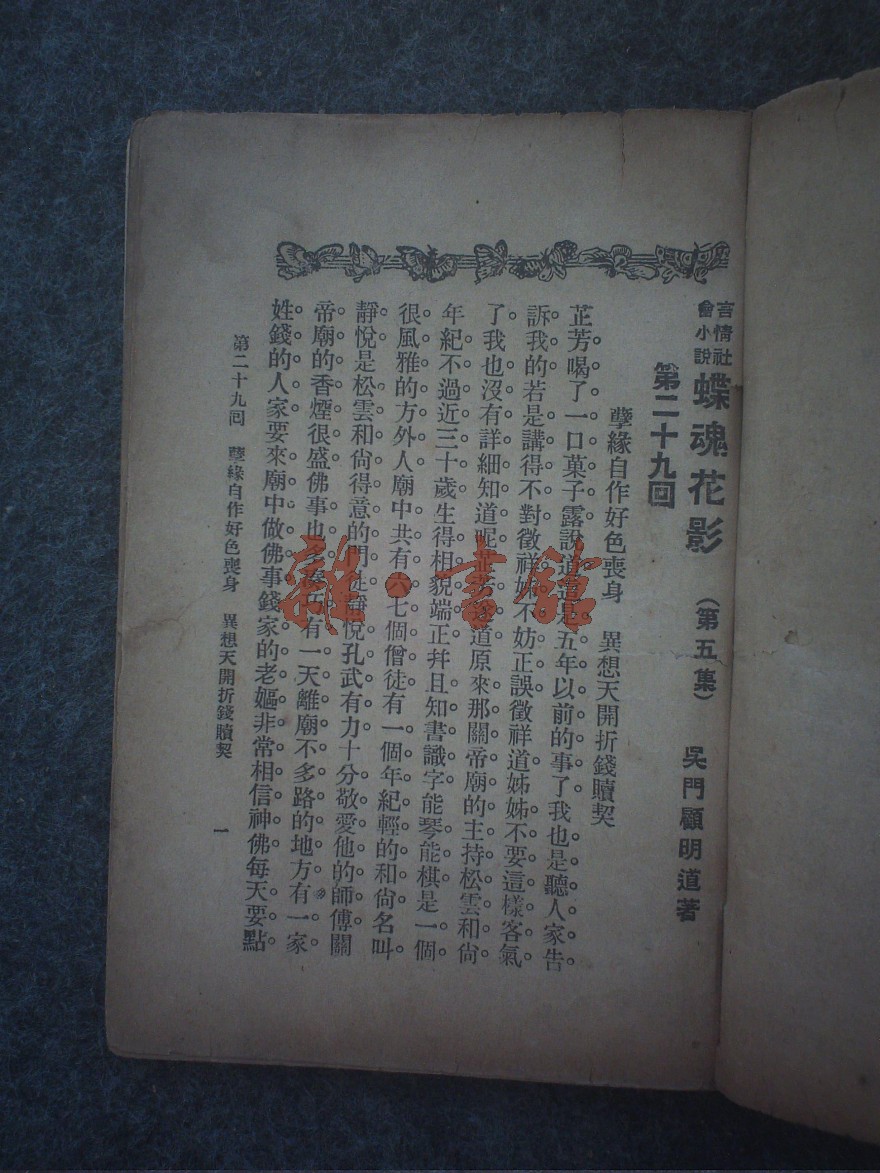 言情社會小說 蝶魂花影 （第五集） 吳門顧明道著
第二十九回
孽緣自作好色喪身 異想天開折錢贖契
芷芳喝了一口菓子露說道這是五年以前的事了我也是聽人家告
訴我的若是講得不對徵祥姊不妨正誤徵祥道姊姊不要這樣客氣
了我也沒有詳細知道呢芷芳遂道原來那關帝廟的主持松雲和尙
年紀不過近三十歲生得相貌端正幷且知書識字能琴能棋是一個
很風雅的方外人廟中共有六七個僧徒有一個年紀輕的和尙名叫
靜悅是松雲和尙得意的門徒靜悅孔武有力十分敬愛他的師傅關
帝廟的香煙很盛佛事也多湊巧有一天離廟不多路的地方有一家
姓錢的人家要來廟中做佛事錢家的老嫗非常相信神佛每天要點
第二十九回 孽緣自作好色喪身 異想天開折錢贖契 一
雜·書館